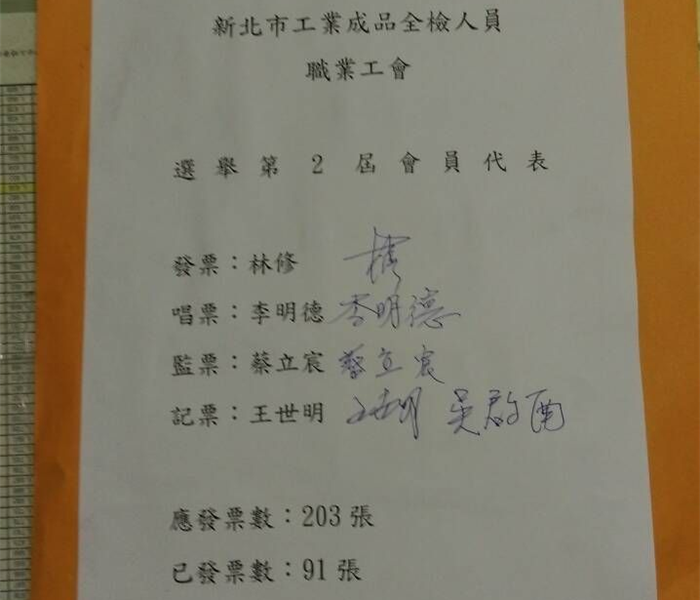 新北市工業成品全檢人員
職業工會
選舉第2屆會員代表
發票：林修
唱票：李明德 李明德
監票：蔡立宸 蔡立宸
記票：王世明 王世明 吳啟
應發票數：203張
已發票數：91張